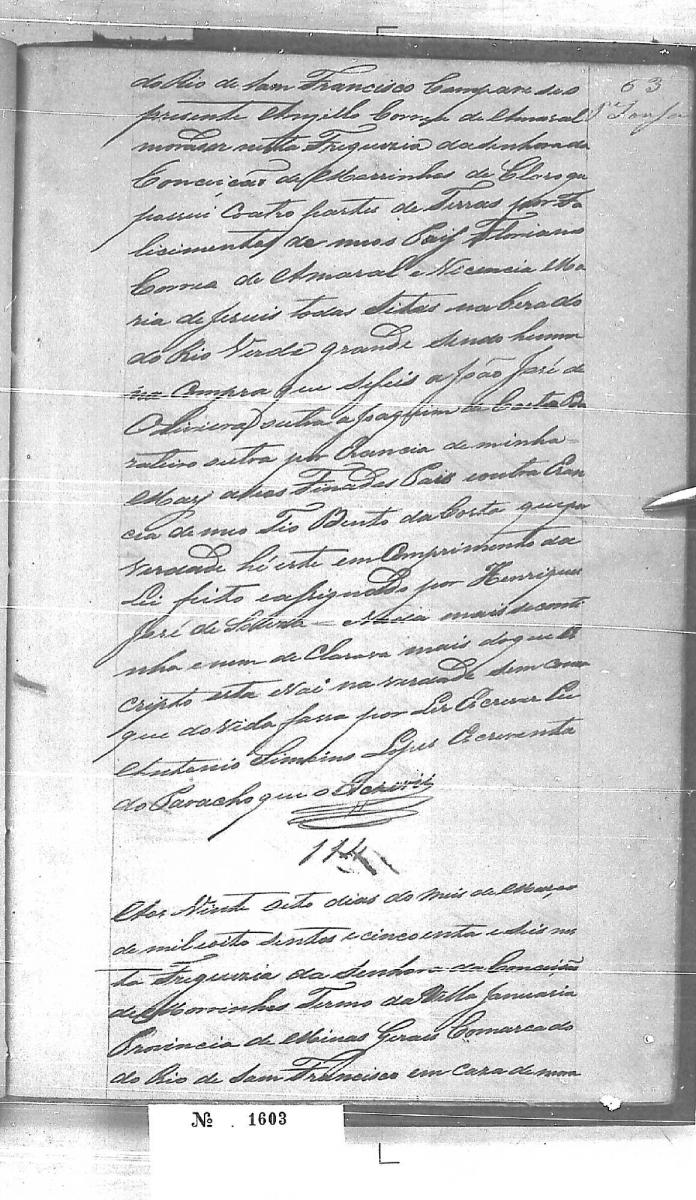 63
do Rio de Sam Francisco Compareseo
presente Angello Correa de Amaral
morador nesta Freguezia da Senhora da
Conceicão de Morrinhos de Claro que
possui Coatro partes de Terras por Fa
licimentes de meos Pais Floriano
Correa de Amaral e Vicencia Ma
ria de Jesuis todas sitas na bera do
do Rio Verde grande sendo huma
na Compra que se feis a João José de
Oliveira outra a Joaquim da Costa Ba
rateiro outra por Erancia de minha
May e meo Finados Pais e outra Eran
cia de meo Tio Bento da Costa que pa
verdade hé este em Comprimento da
Lei feito e asignado por Henrique
José de Nada mais se conti
nha e nem de Clarava mais do que Es
cripto esta Vai na verdade sem couza
que dovida fassa por Ler Escrever Eu
Antonio Lopes Escreventa
do Paracho que o Escrivi
114
Aos Vinte oito dias do mis de Março
de mil oito sentos e cincoenta e seis nes
ta Freguezia da Senhora da Conceição
de Morrinhos Termo da Villa Januaria
Provincia de Minas Gerais Comarca do
do Rio de Sam Francisco em caza de mora
№ 1603